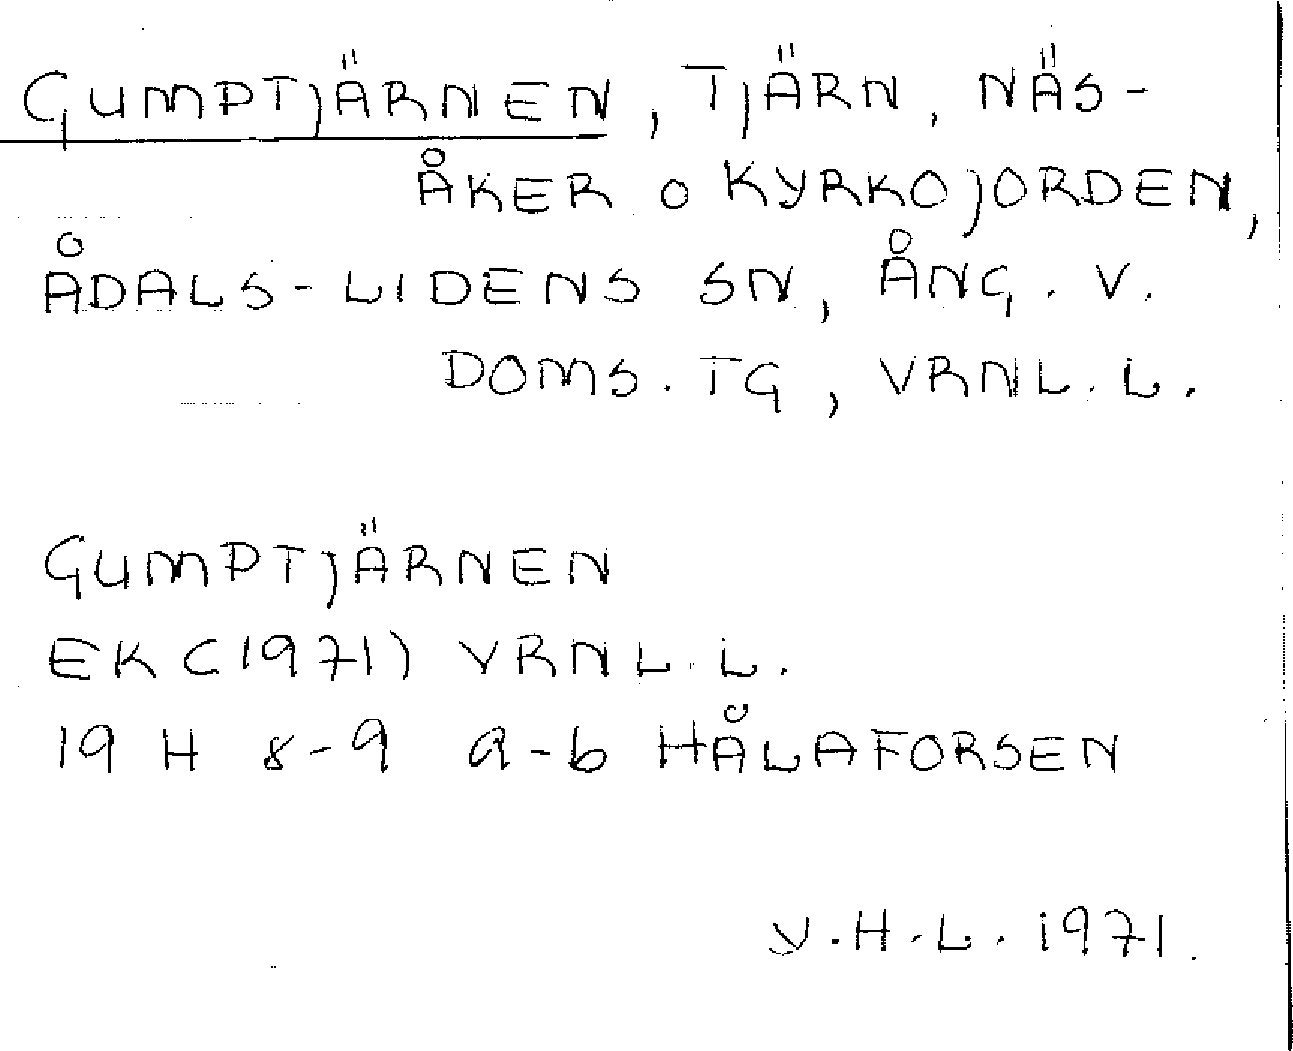 GUMPTJÄRNEN, TJÄRN, NÄS-
ÅKER O KYRKOJORDEN,
ÅDALS-LIDENS SN, ÅNG. V.
DOMS. TG, VRNL. L.
GUMPTJÄRNEN
EK (1971) VRNL. L.
19 H 8-9 a-b HÅLAFORSEN
Y.H.L. 1971.